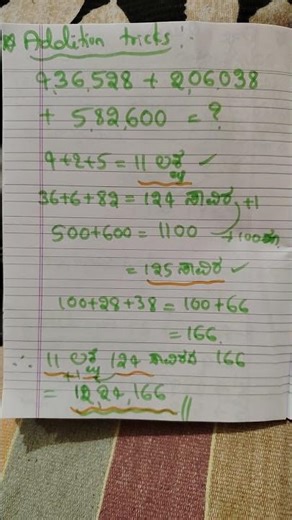 Addition tricks :
4,36,528 + 2,06,038
+ 5,82,600 = ?
4+2+5 = 11 ಲಕ್ಷ ✓
36+6+82 = 124 ಸಾವಿರ +1
500+600 = 1100 → 100
= 125 ಸಾವಿರ ✓
100+28+38 = 100+66
= 166
∴ 11 ಲಕ್ಷ 124 ಸಾವಿರದ 166
+1
= 12,24,166